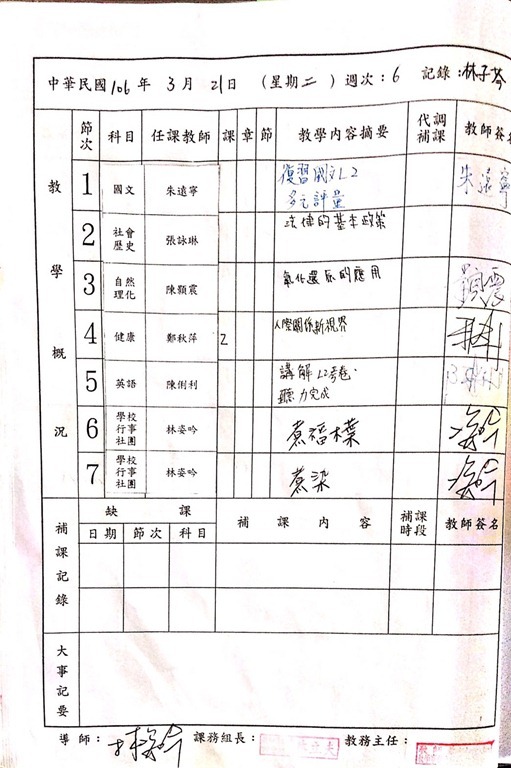 中華民國106年 3月 21日 (星期二) 週次:6 記錄:林子芩
教學概況
節次 科目 任課教師 課 章 節 教學內容摘要 代調補課 教師簽名
1 國文 朱遠寧 復習國文L2 朱遠寧
多元評量
2 社會歷史 張詠琳 法律的基本政策
3 自然理化 陳顥震 氧化還原的應用
4 健康 鄭秋萍 2 人際關係新視界
5 英語 陳俐利 講解L2考卷.
聽力完成
6 學校行事社團 林姿吟 煮福木葉
7 學校行事社團 林姿吟 煮染
補課記錄
缺課 補課內容 補課時段 教師簽名
日期 節次 科目
大事記要
導師: 課務組長: 教務主任: